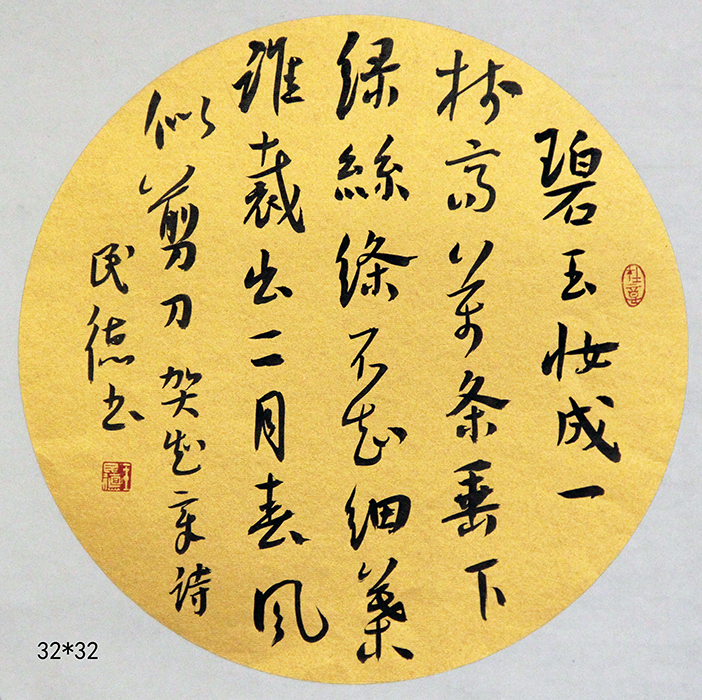 碧玉妆成一
树高萬条垂下
绿絲絛不知细葉
谁裁出二月春风
似剪刀 贺知章诗
民德书
王民德
32*32